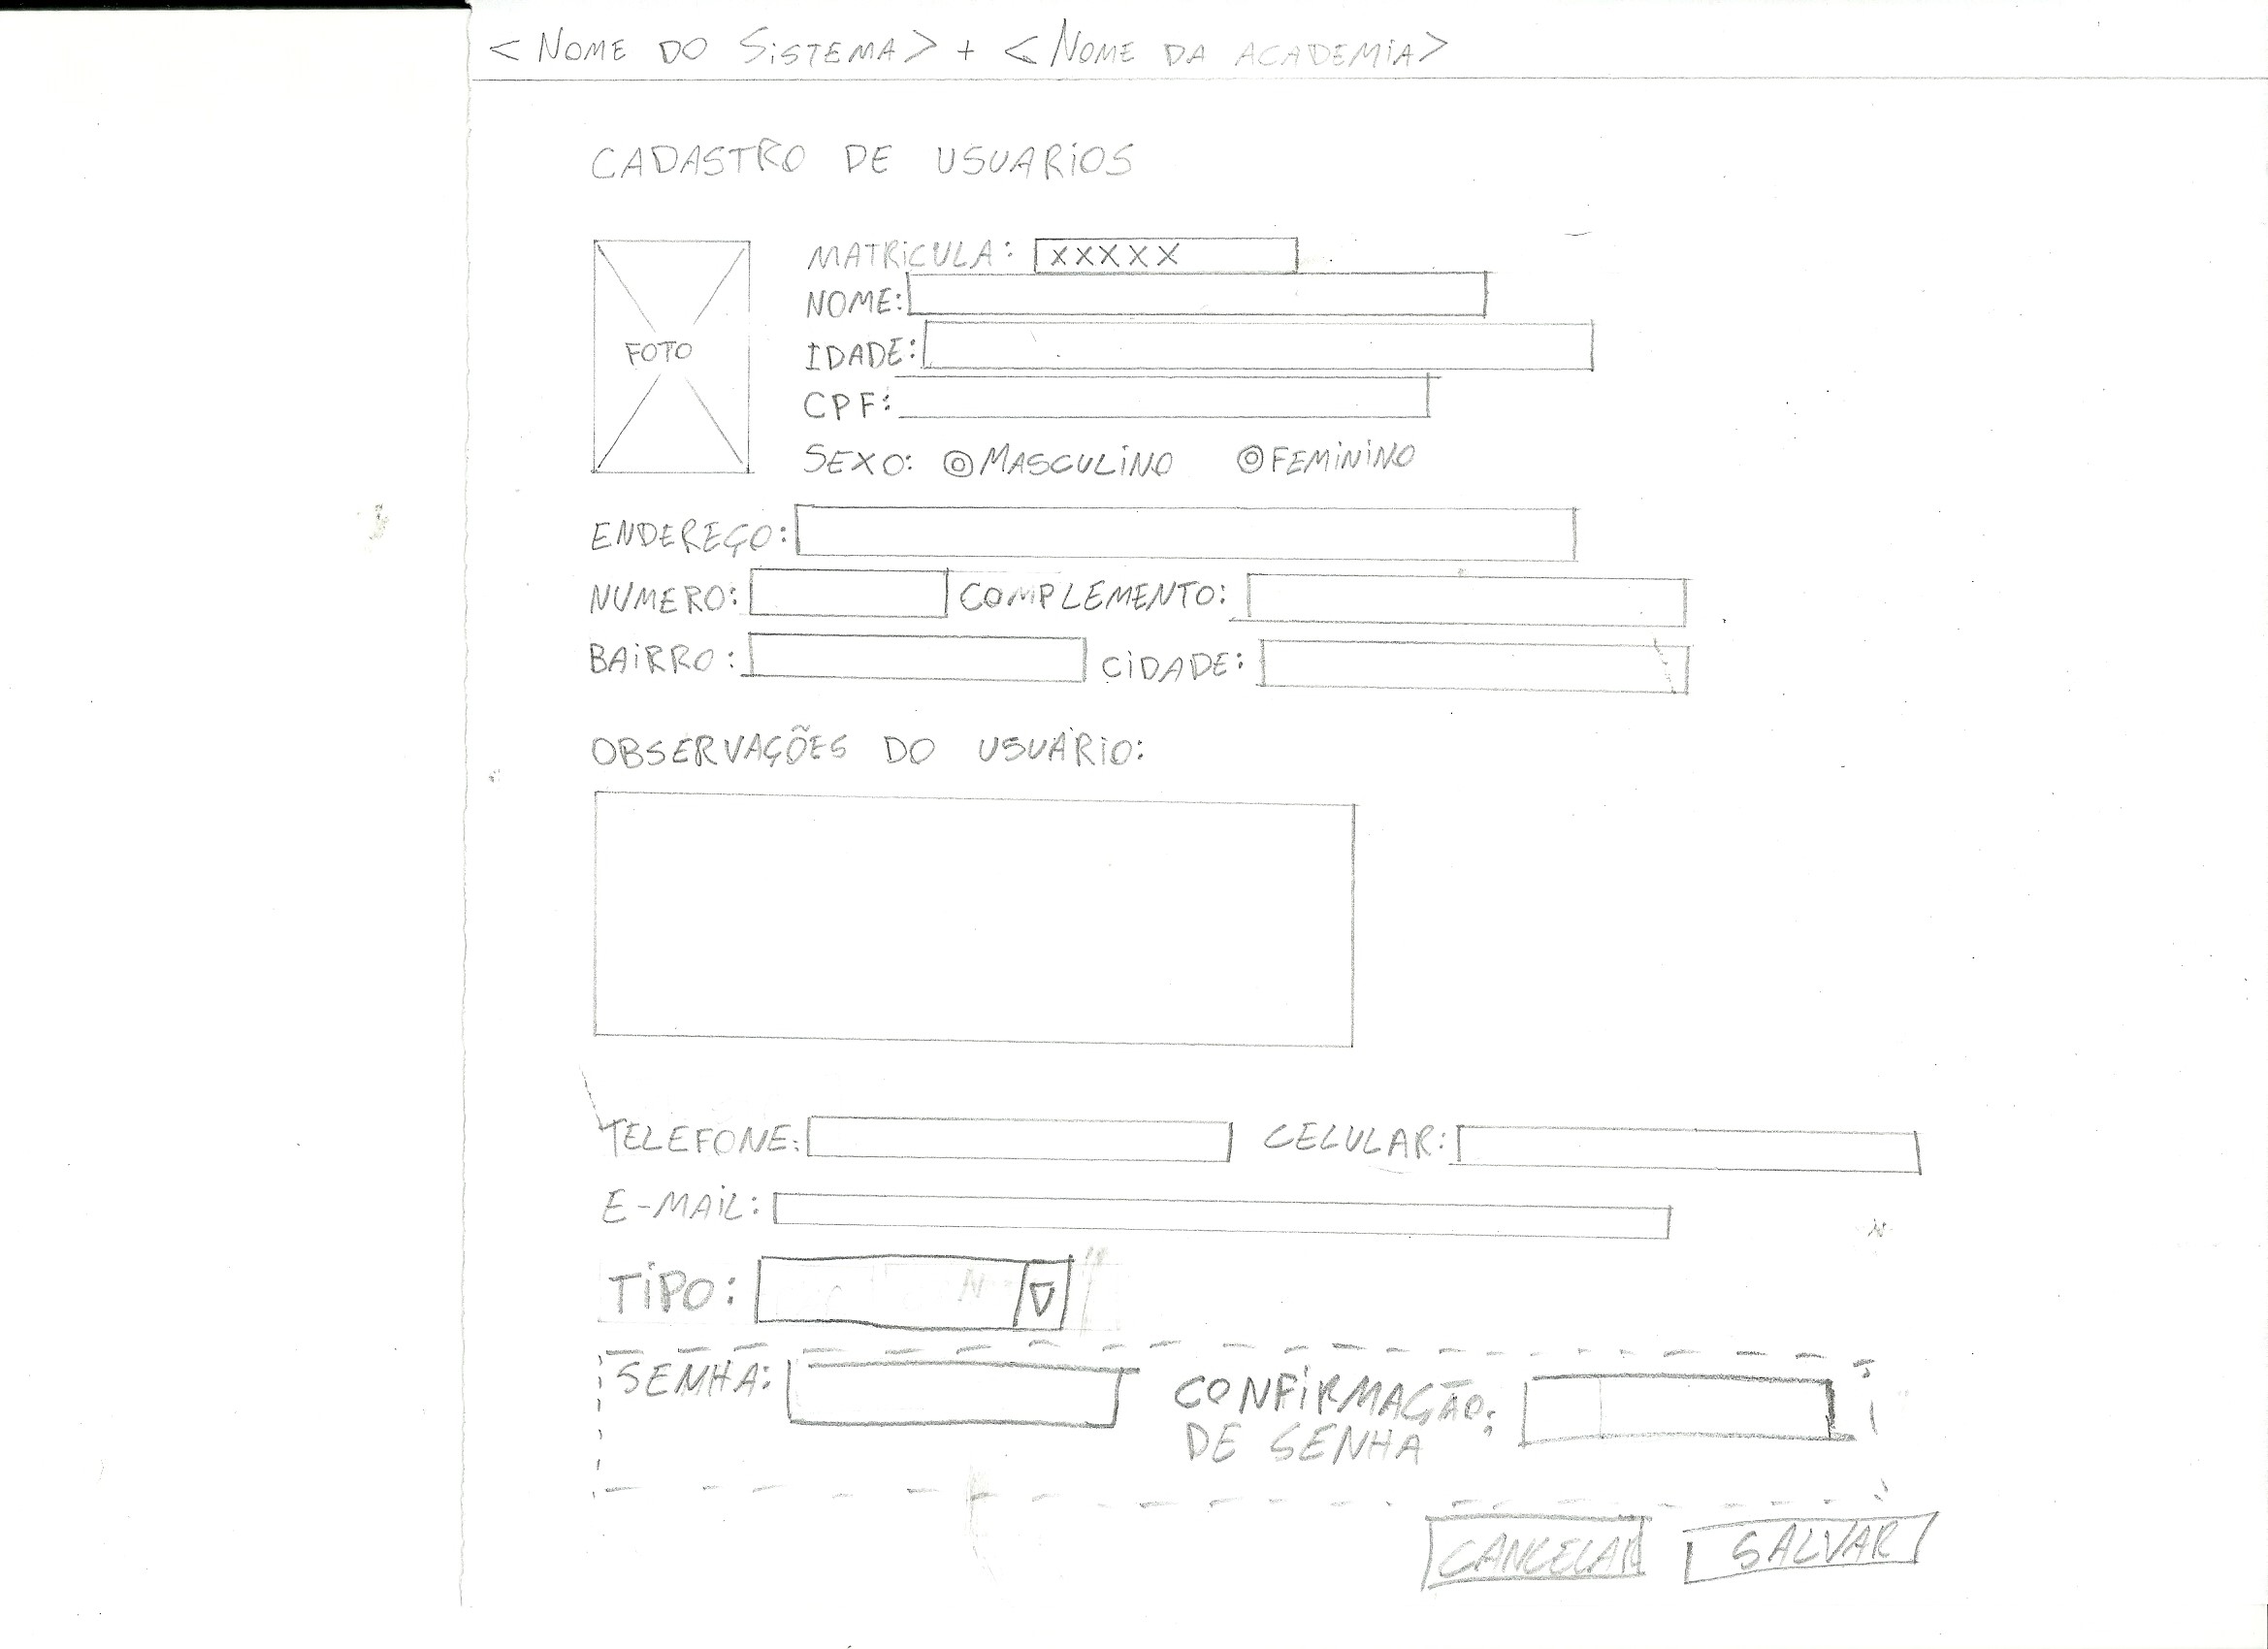 <NOME DO SISTEMA> + <NOME DA ACADEMIA>
CADASTRO DE USUARIOS
FOTO
MATRICULA: XXXXX
NOME:
IDADE:
CPF:
SEXO: MASCULINO FEMININO
ENDEREÇO:
NUMERO: COMPLEMENTO:
BAIRRO: CIDADE:
OBSERVAÇÕES DO USUÁRIO:
TELEFONE: CELULAR:
E-MAIL:
TIPO:
SENHA: CONFIRMAÇÃO:
DE SENHA
CANCELAR SALVAR